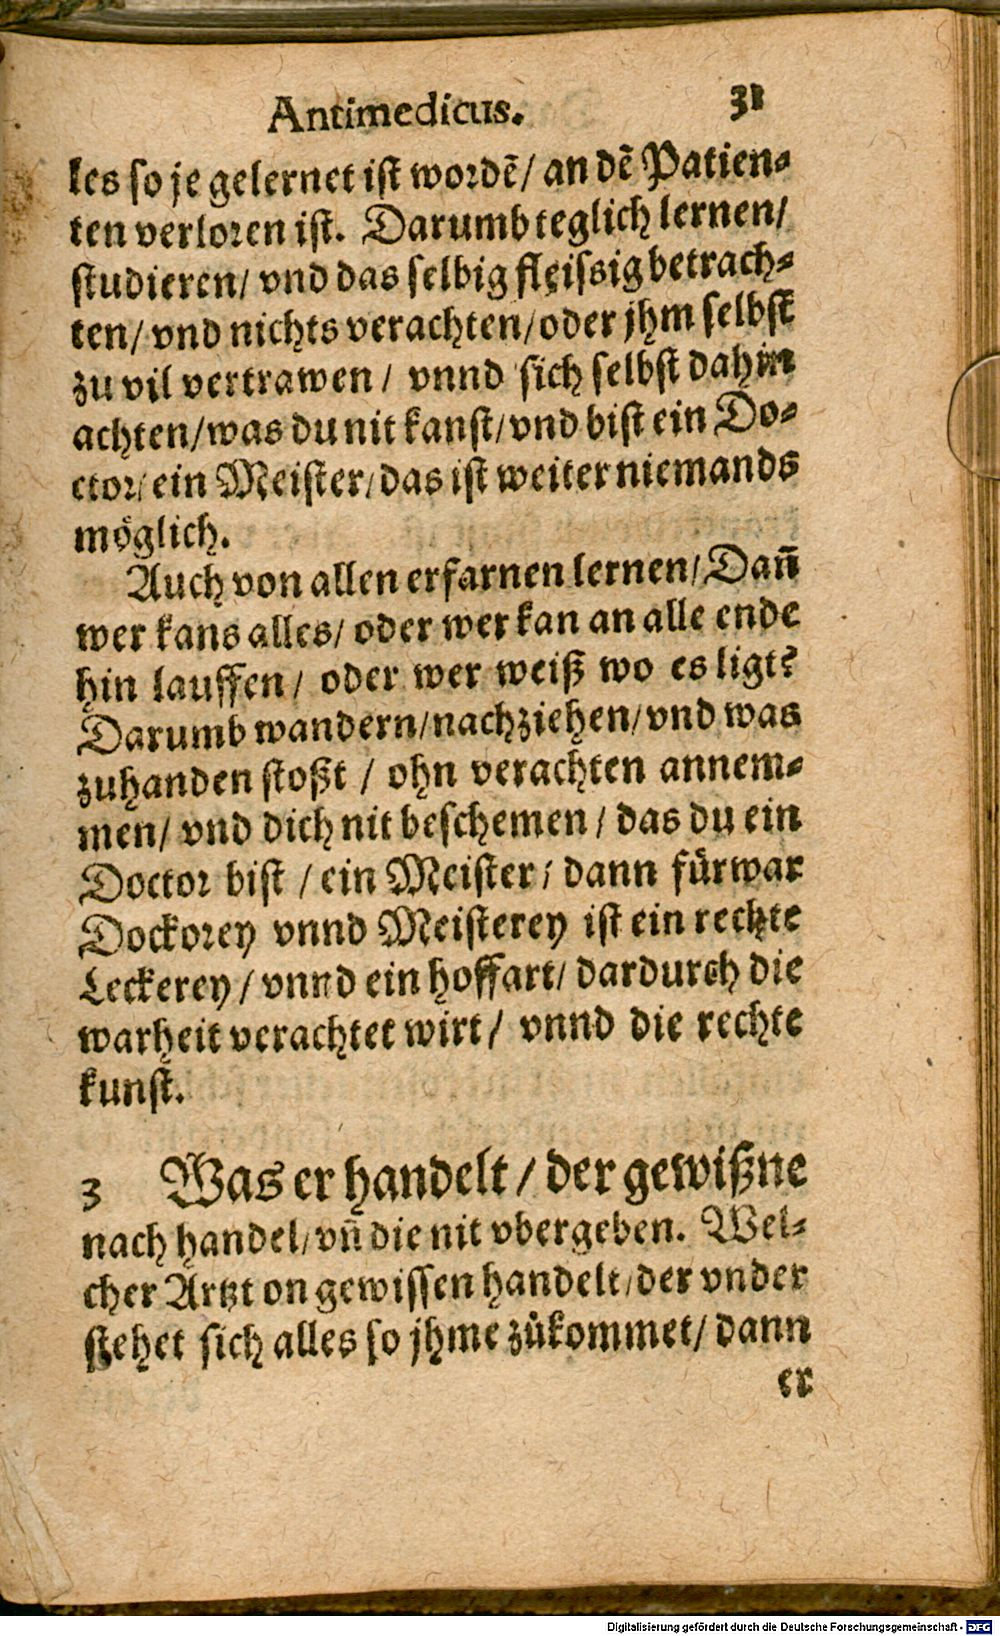 Antimedicus. 31
kes so je gelernet ist wordẽ/ an dẽ Patien-
ten verloren ist. Darumb teglich lernen/
studieren/ vnd das selbig fleissig betrach-
ten/ vnd nichts verachten/ oder jhm selbst
zu vil vertrawen / vnnd sich selbst dahin
achten/ was du nit kanst/ vnd bist ein Do-
ctor/ ein Meister/ das ist weiter niemands
möglich.
Auch von allen erfarnen lernen/ Dañ
wer kans alles/ oder wer kan an alle ende
hin lauffen/ oder wer weiß wo es ligt?
Darumb wandern/ nachziehen/ vnd was
zuhanden stoßt / ohn verachten annem-
men/ vnd dich nit beschemen / das du ein
Doctor bist / ein Meister; dann fürwar
Dockorey vnnd Meisterey ist ein rechte
Leckerey / vnnd ein hoffart/ dardurch die
warheit verachtet wirt/ vnnd die rechte
kunst.
3 Was er handelt / der gewißne
nach handel/ vñ die nit vbergeben. Wel-
cher Artzt on gewissen handelt/ der vnder
stehet sich alles so jhme zůkommet/ dann
er
Digitalisierung gefördert durch die Deutsche Forschungsgemeinschaft - DFG